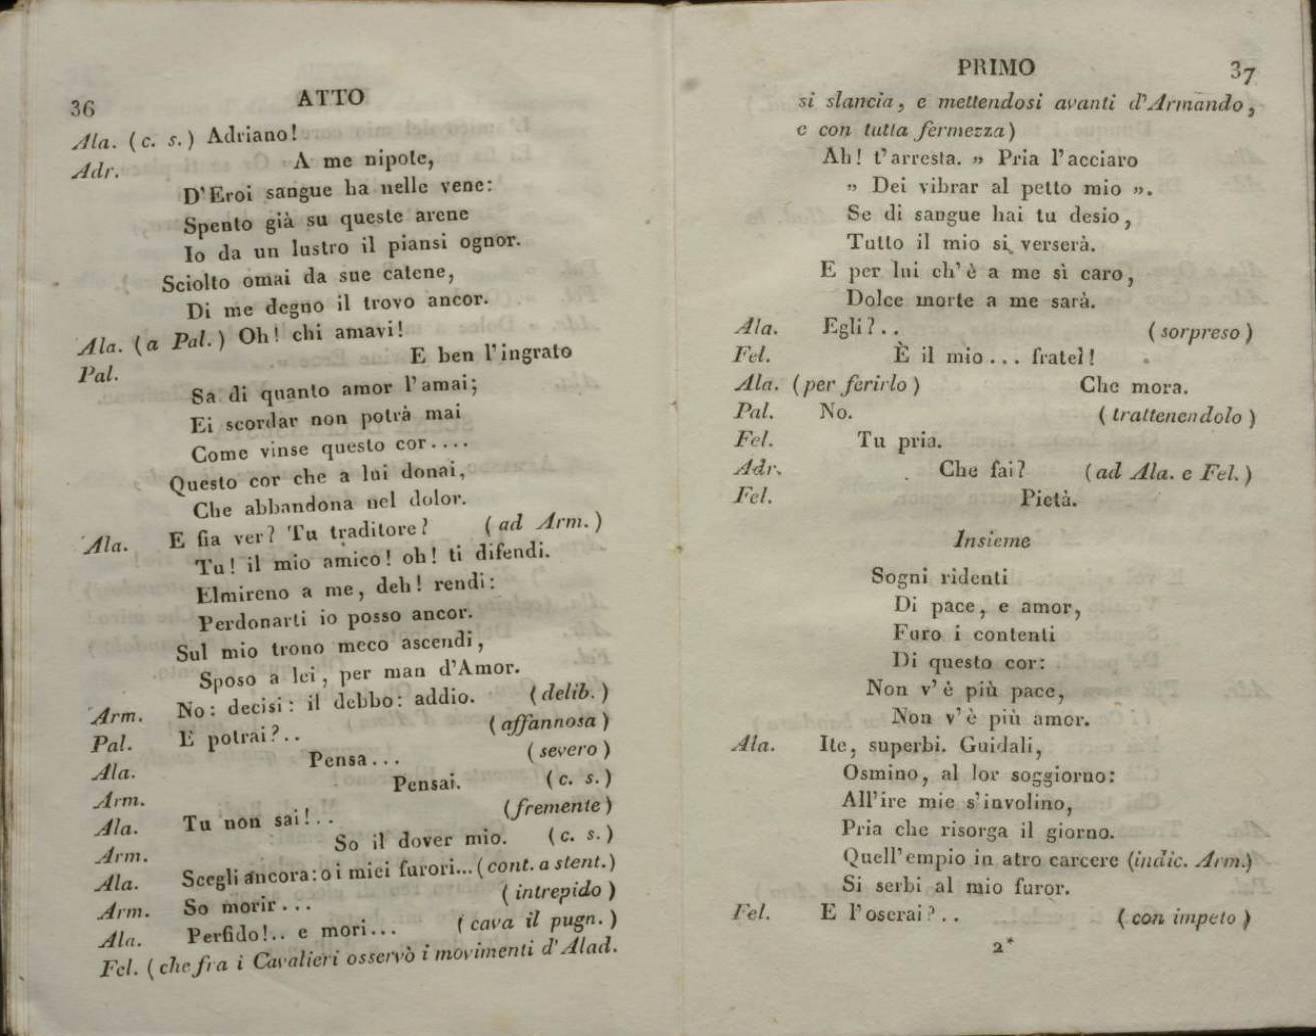 36
ATTO
Ala. (c. s.) Adriano!
Adr. A me nipote,
D'Eroi sangue ha nelle vene:
Spento già su queste arene
Io da un lustro il piansi ognor.
Sciolto omai da sue catene,
Di me degno il trovo ancor.
Ala. (a Pal.) Oh! chi amavi!
Pal. E ben l'ingrato
Sa di quanto amor l'amai;
Ei scordar non potrà mai
Come vinse questo cor....
Questo cor che a lui donai,
Che abbandona nel dolor.
Ala. E fia ver? Tu traditore? (ad Arm.)
Tu! il mio amico! oh! ti difendi.
Elmireno a me, deh! rendi:
Perdonarti io posso ancor.
Sul mio trono meco ascendi,
Sposo a lei, per man d'Amor.
Arm. No: decisi: il debbo: addio. (delib.)
Pal. E potrai?.. (affannosa)
Ala. Pensa... (severo)
Arm. Pensai. (c. s.)
Ala. Tu non sai!.. (fremente)
Arm. So il dover mio. (c. s.)
Ala. Scegli ancora: o i miei furori... (cont. a stent.)
Arm. So morir... (intrepido)
Ala. Perfido!.. e mori... (cava il pugn.)
Fel. (che fra i Cavalieri osservò i movimenti d'Alad.
PRIMO
37
si slancia, e mettendosi avanti d'Armando,
e con tutta fermezza)
Ah! t'arresta. » Pria l'acciaro
» Dei vibrar al petto mio ».
Se di sangue hai tu desio,
Tutto il mio si verserà.
E per lui ch'è a me sì caro,
Dolce morte a me sarà.
Ala. Egli?.. (sorpreso)
Fel. È il mio... fratel!
Ala. (per ferirlo) Che mora.
Pal. No. (trattenendolo)
Fel. Tu pria.
Adr. Che fai? (ad Ala. e Fel.)
Fel. Pietà.
Insieme
Sogni ridenti
Di pace, e amor,
Furo i contenti
Di questo cor:
Non v'è più pace,
Non v'è più amor.
Ala. Ite, superbi. Guidali,
Osmino, al lor soggiorno:
All'ire mie s'involino,
Pria che risorga il giorno.
Quell'empio in atro carcere (indic. Arm.)
Si serbi al mio furor.
Fel. E l'oserai?.. (con impeto)
2*